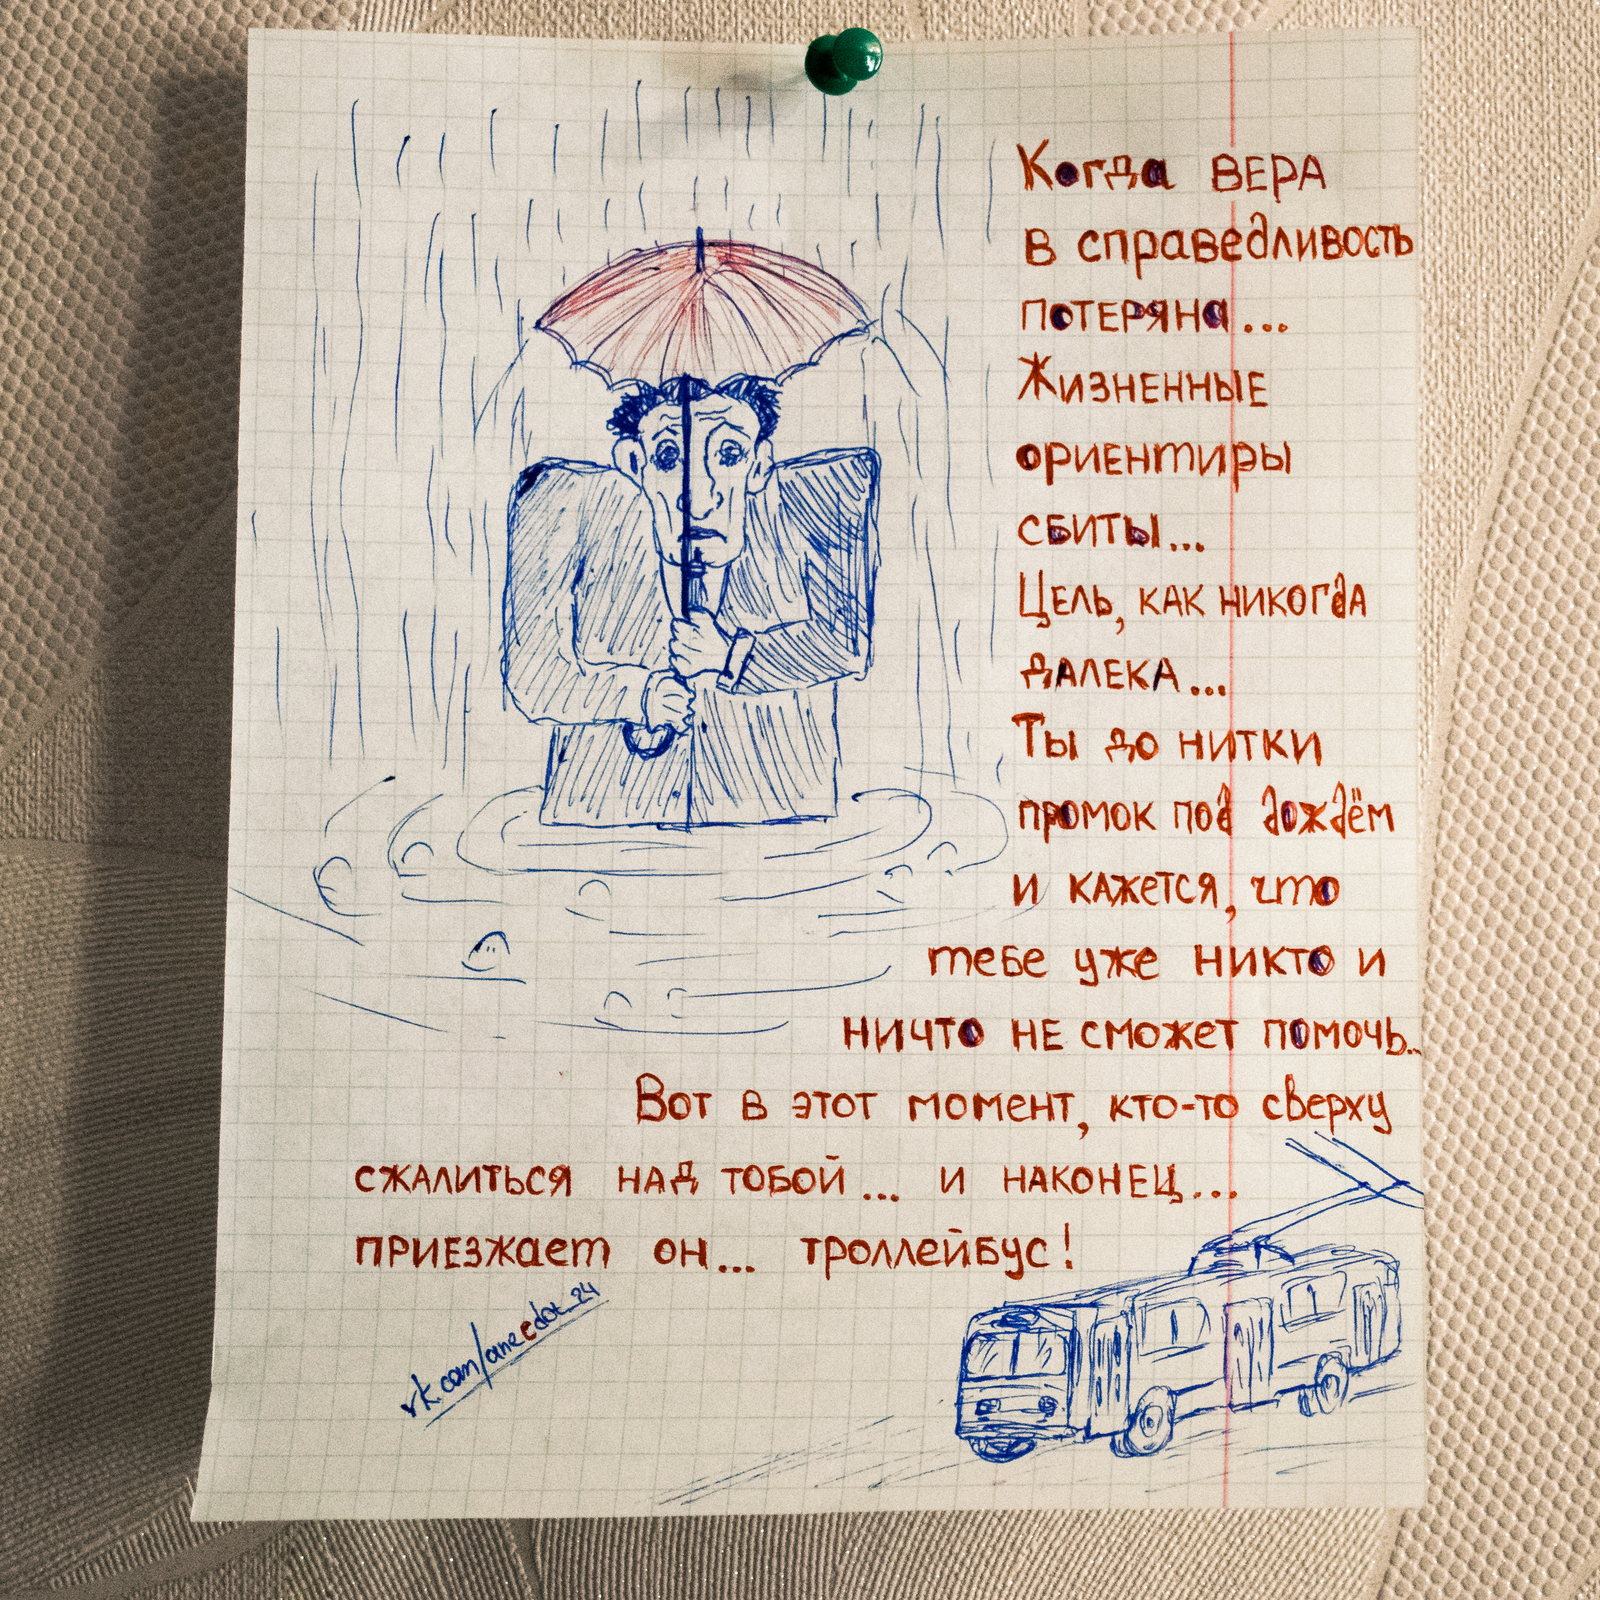 Когда ВЕРА
в справедливость
потеряна...
Жизненные
ориентиры
сбиты...
Цель, как никогда
далека...
Ты до нитки
промок под дождём
и кажется, что
тебе уже никто и
ничто не сможет помочь..
Вот в этот момент, кто-то сверху
сжалиться над тобой... и наконец...
приезжает он... троллейбус!
vk.com/anecdot_24